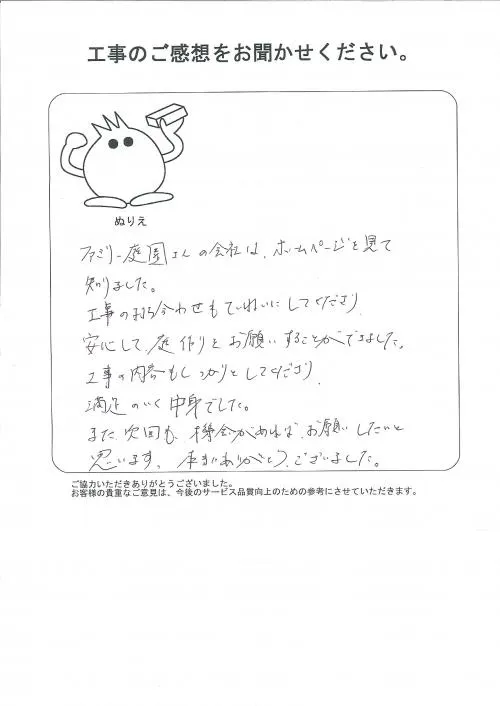 工事のご感想をお聞かせください。
ぬりえ
ファミリー庭園さんの会社は、ホームページを見て
知りました。
工事の打ち合わせもていねいにしてくださり、
安心して庭作りをお願いすることができました。
工事の内容もしっかりとしてくださり、
満足のいく中身でした。
また、次回も、機会があれば、お願いしたいと
思います。本当にありがとうございました。
ご協力いただきありがとうございました。
お客様の貴重なご意見は、今後のサービス品質向上のための参考にさせていただきます。